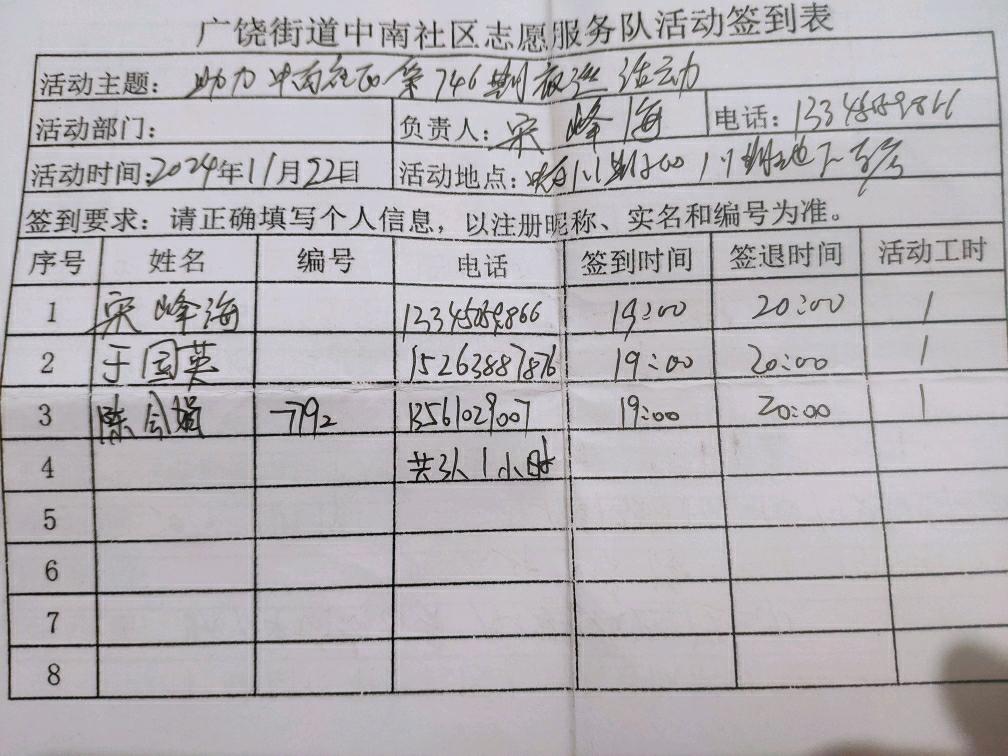 广饶街道中南社区志愿服务队活动签到表
活动主题: 助力中南社区第746期夜巡活动
活动部门: 负责人: 宋峰海 电话: 13345059866
活动时间: 2024年11月22日 活动地点:
签到要求: 请正确填写个人信息, 以注册昵称、实名和编号为准。
序号 姓名 编号 电话 签到时间 签退时间 活动工时
1 宋峰海 13345059866 19:00 20:00 1
2 于国英 15263887876 19:00 20:00 1
3 陈会娟 7792 13561029007 19:00 20:00 1
4 共3人1小时
5
6
7
8